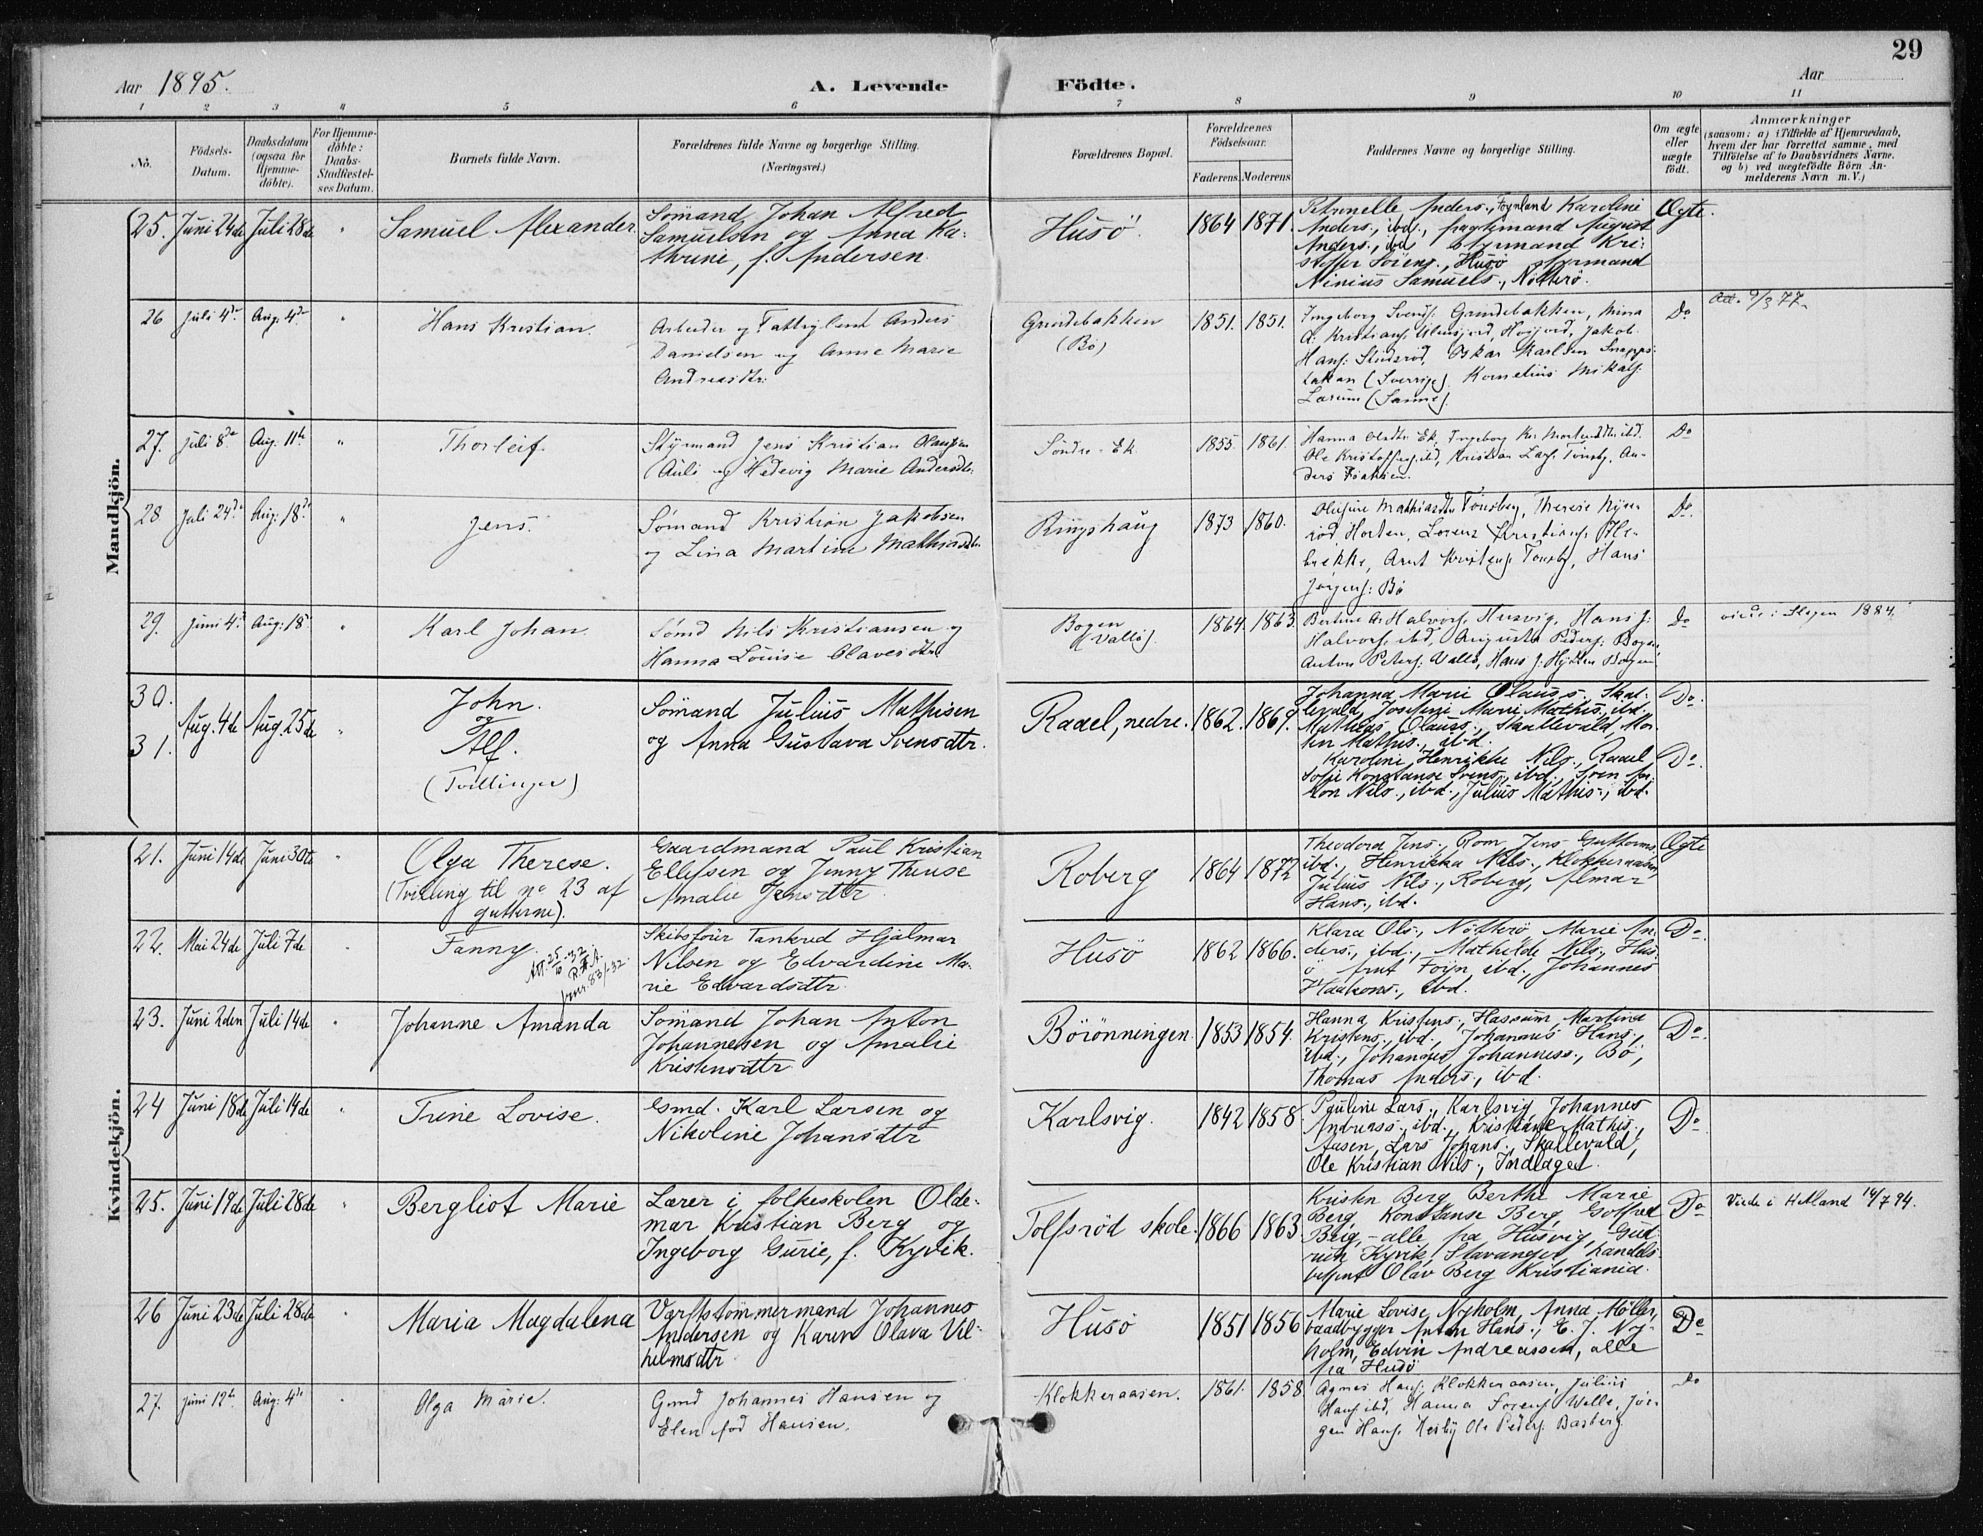 29
Aar 1895.
A. Levende Födte.
Aar
1 2 3 4 5 6 7 8 9 10 11
No.
Födsels-
Datum.
Daabsdatum
(ogsaa for
Hjemme-
döbte).
For Hjemme-
döbte:
Daabs-
Stadfæstel-
ses Datum.
Barnets fulde Navn.
Forældrenes fulde Navne og borgerlige Stilling.
(Næringsvei.)
Forældrenes Bopæl.
Forældrenes
Födselsaar.
Faderens. Moderens.
Faddernes Navne og borgerlige Stilling.
Om ægte
eller
uægte
födt.
Anmærkninger
(saasom: a) i Tilfælde af Hjemmedaab,
hvem der har forrettet samme, med
Tilföielse af to Daabsvidners Navne,
og b) ved uægtefödte Börn An-
melderens Navn m. V.)
Mandkjön.
25. Juni 24de Juli 28de " Samuel Alexander.
Sömand Johan Alfred
Samuelsen og Anna Ka-
thrine, f. Andersen.
Husö. 1864 1871.
Petronelle Anders., Föynland Karoline
Anders., ibd., August
Anders., ibd Styrmand Kri-
stoffer Sörens., Husö Styrmand
Ninius Samuels., Nötterö.
Ægte.
26 Juli 4de Aug. 4de " Hans Kristian.
Arbeider og Fattiglem Anders
Danielsen og Anne Marie
Andreasdtr.
Grindebakken
(Bö)
1851. 1851.
Ingeborg Svends. Grindebakken, Mina
Kristians. Hoijord, Jakob
Hans. Oskar Karlsen
(Sverrige). Kornelius Mikals.
Do
Att. 9/3 77.
27. Juli 8de Aug. 11te " Thorleif.
Styrmand Jens Kristian Olaussen
(Auli og Hedevig Marie Andersdtr.
Söndre-Ek 1855. 1861.
Hanna Olsdtr. Ek, Ingeborg Ka. ibd.
Ole Kristoffers. ibd, Kristian Lars. Tönsbg, An-
ders Bakken.
Do
28 Juli 24de Aug. 18de " Jens.
Sømand Kristian Jakobsen
og Lina Martine Mathiasdtr.
Ringshaug 1873 1860.
Olufine Mathiasdtr. Tönsberg, Therese
Horten, Lorens Kristians.
Arnt Tönsbg, Hans
Jörgens. Bö
Do.
29. Juni 4de Aug. 18de " Karl Johan.
Sømd Nils Kristiansen og
Hanna Louise Olavesdtr.
Bogen
(Vallö).
1864. 1863.
Halvors. Husvig, Hans J.
Halvors. ibd, Augusta Peders. Bogen,
Anton Peters. Vallö, Hans J. Bogen
Do
viede i Slagen 1884.
30.
31.
Aug. 4de Aug. 25de "
John.
og
Alf.
(Tvillinger)
Sömand Julius Mathisen
og Anna Gustava Svensdtr.
Raael, nedre. 1862. 1869.
Johanna Marie Olauss., Skal-
levald, Josefine Marie Mathis., ibd.
Mathias Olauss., Skallevald, Mor-
ten Mathis., ibd.
Karoline Henrikke Nils., Raael
Sofie Konstanse Svens., ibd., Sven An-
ton Nils., ibd., Julius Mathis., ibd.
Do.
Do.
Kvindekjön.
21. Juni 14de Juni 30te " Olga Therese.
(Tvilling til no 23 af
gutterne).
Gaardmand Paul Kristian
Ellefsen og Jenny Theese
Amalie Jensdtr
Roberg 1864 1872
Theodora Jens., Rom Jens Guttorms.,
ibd., Henrikka Nils., Klokkeraasen,
Julius Nils., Roberg, Almar
Hans., ibd.
Ægte
22. Mai 24de Juli 7de " Fanny.
Att. 25/10-32.
Skibsförer Tankred Hjalmar
Nilsen og Edvardine Ma-
rie Edvardsdtr.
Husö 1862 1866.
Klara Ols., Nötterö Marie An-
ders., ibd., Mathilde Nils., Hus-
ö Arnt Föyn, ibd., Johannes
Haakons., ibd.
Do.
23. Juni 2den Juli 14de " Johanne Amanda
Sömand Johan Anton
Johannesen og Amalie
Kristensdtr
Börönningen. 1853 1854.
Hanna Kristens., Hassum Martina
Kristens., ibd., Johannes Hans.,
ibd., Johannes Johanness., Bö,
Thomas Anders., ibd.
Do.
24 Juni 18de Juli 14de " Trine Lovise.
Gmd. Karl Larsen og
Nikoline Johansdtr
Karlsvig. 1842 1858.
Pauline Lars., Karlsvig, Johannes
Andreass., ibd., Kristiane Mathis.,
Aasen, Lars Johans., Skallevald,
Ole Kristian Nils., Indlaget.
Do.
25. Juni 19de Juli 28de " Bergliot Marie
Lærer i folkeskolen Olde-
mar Kristian Berg og
Ingeborg Gurie, f. Kyvik.
Tolfsröd skole. 1866 1863.
Kristen Berg Berthe Marie
Berg, Konstanse Berg, Gotfred
Berg, - alle paa Husvig, Gud-
run Kyvik, Stavanger, handels-
betjent Olav Berg Kristiania.
Do
Viede i Hetland 14/7 94.
26 Juni 23de Juli 28de " Maria Magdalena
Værftstömmermand Johannes
Andersen og Karen Olava Vil-
helmsdtr.
Husö 1851 1856
Marie Lovise Nyholm, Anna Möller,
baadbygger Anton Hans., E. J. Ny-
holm, Edvin Andreassen, alle
fra Husö
Do
27. Juni 12te Aug. 4de " Olga Marie.
Gmd Johannes Hansen og
Elen fød Hansen.
Klokkeraasen. 1861. 1858
Agnes Hans. Klokkeraasen, Julius
Hans. ibd, Hanna Sorens. Welle, Jör-
gen Hans. Ole Peders. Basberg
do